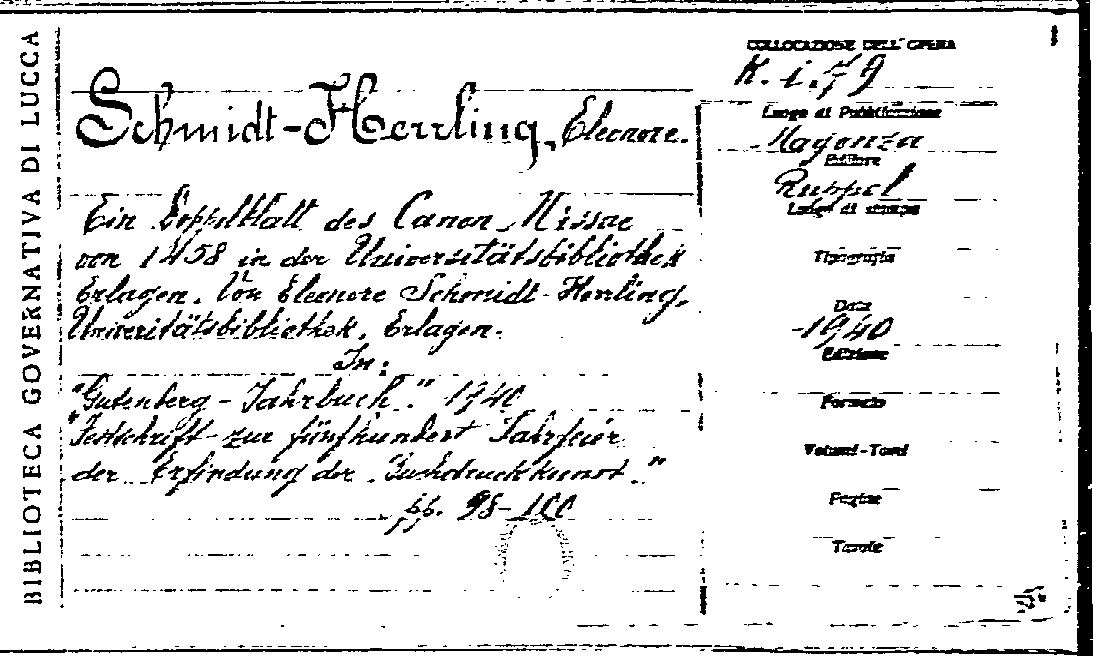 BIBLIOTECA GOVERNATIVA DI LUCCA
Schmidt-Herrling, Eleonore.
Ein Doppelblatt des Canon Missae
von 1458 in der Universitätsbibliothek
Erlagen. Von Eleonore Schmidt-Herrling,
Univeritätsbibliothek, Erlagen.
In:
"Gutenberg-Jahrbuch". 1940
"Festschrift zur fünfhundert Jahrfeier
der Erfindung der Buchdruckkunst."
pp. 98-100
COLLOCAZIONE DELL'OPERA
K. i. 79
Luogo di Pubblicazione
Magonza
Editore
Ruppel
Luogo di stampa
Tipografia
Data
1940
Edizione
Formato
Volumi-Tomi
Pagine
Tavole